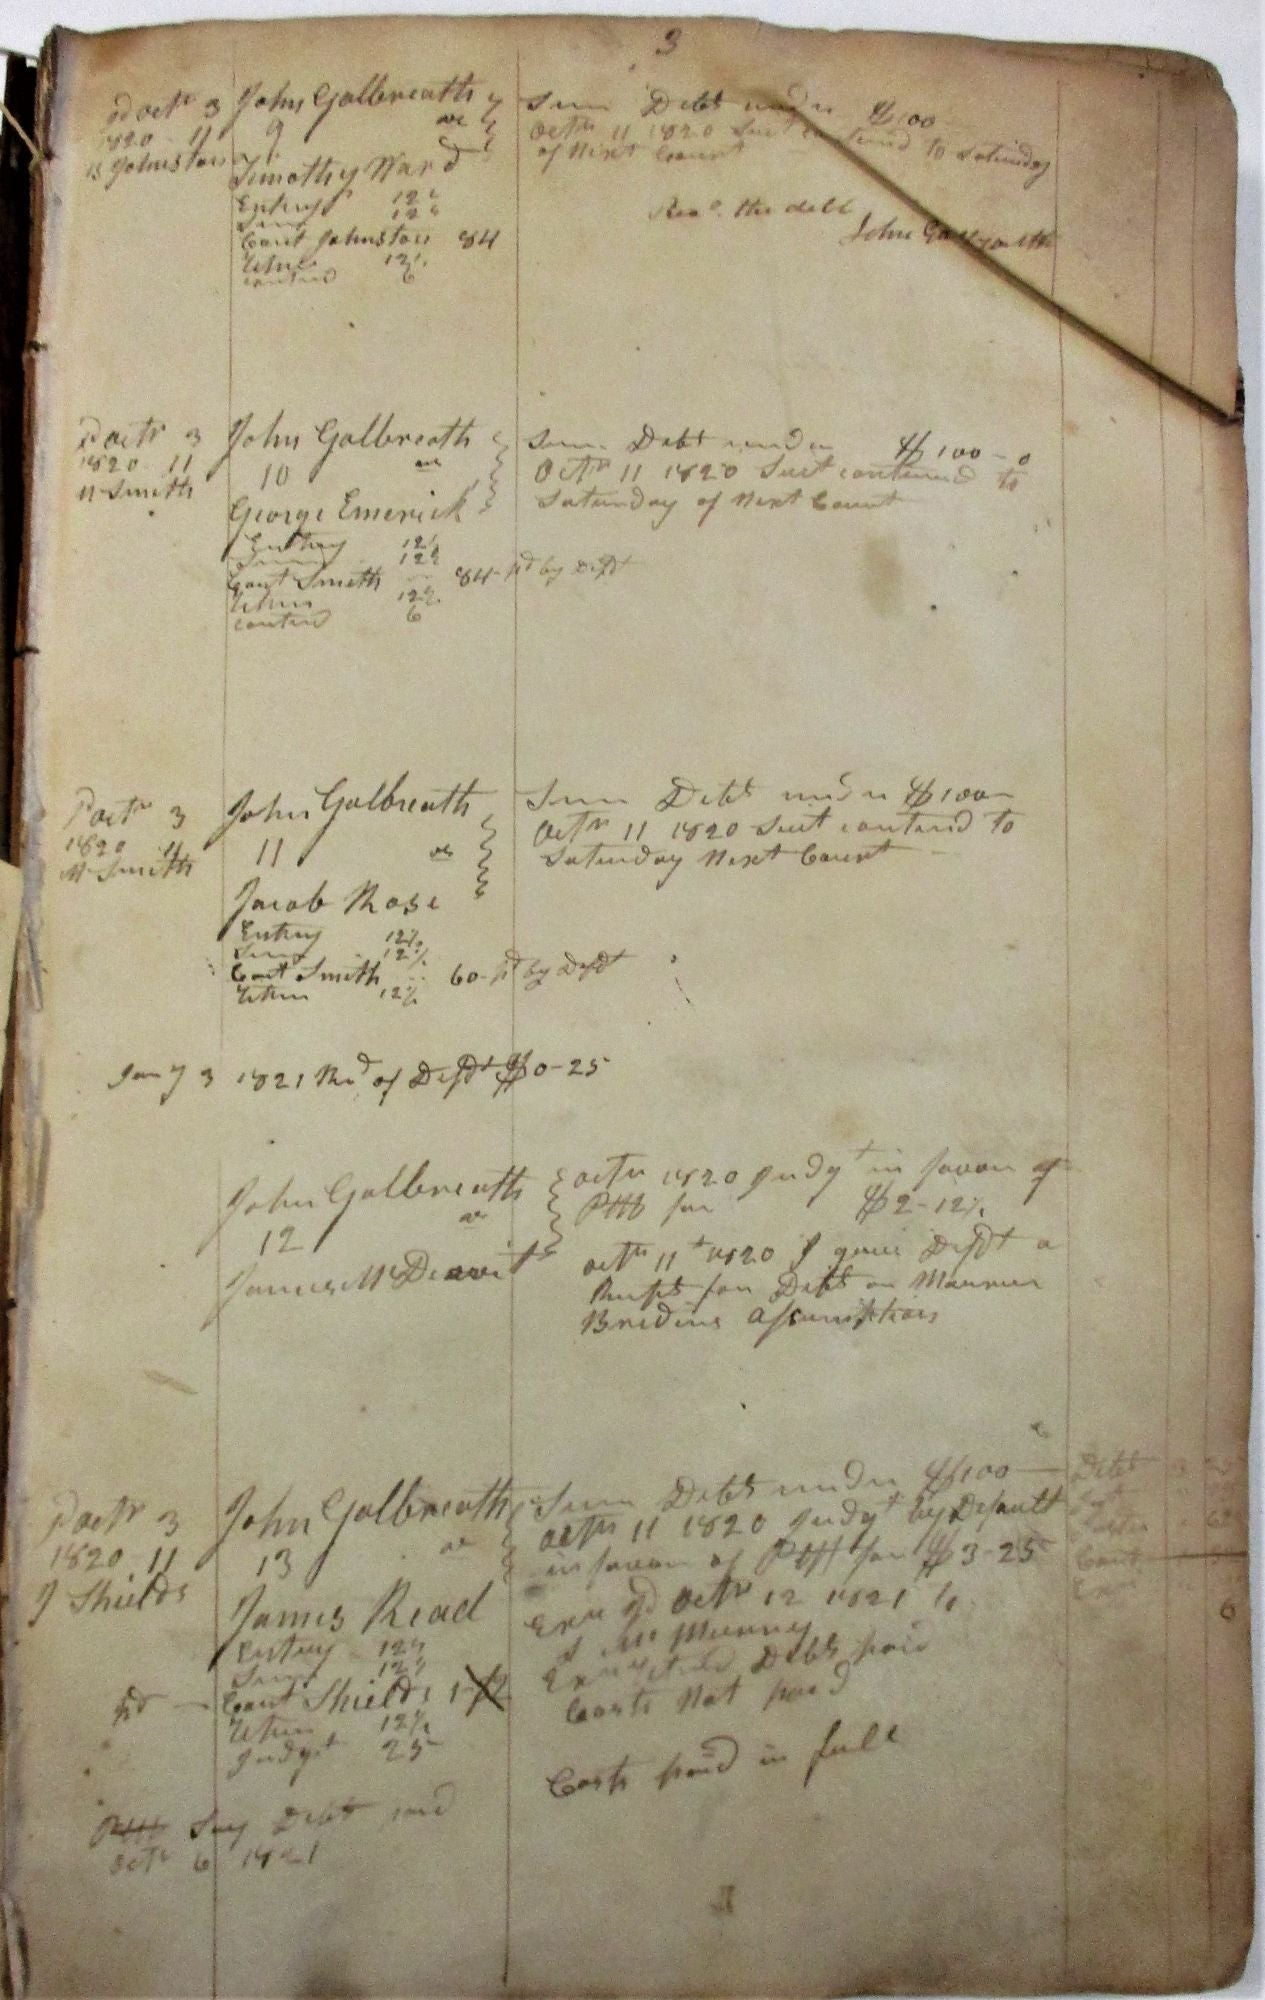 3
octr 3 John Galbreath Sum Debt under $100
1820 11 9 vs Octr 11 1820 Suit to Saturday
Johnston of Next Court
Timothy Ward
Entry 12½ the debt
Sum 12½
Const Johnston 84 John
12½
contnd 6
octr 3 John Galbreath Sum Debt under $100-0
1820 11 10 vs Octr 11 1820 Suit continued to
Smith Saturday of Next Court
George Emerick
Entry 12½
Sum 12½
Const Smith 84 pd by Defdt
12½
contnd 6
octr 3 John Galbreath Sum Debt under $100
1820 11 11 vs Octr 11 1820 Suit contend to
Smith Saturday Next Court
Jacob Rose
Entry 12½
Sum 12½
Const Smith 60 pd by Defdt
12½
Jany 3 1821 Rd of Defdt $0-25
John Galbreath octr 1820 Judgt in favor of
12 vs Pltff for $2-12½
James McDevit octr 11t 1820 I gave Defdt a
for Debt on
Assumption
octr 3 John Galbreath Sum Debt under $100 Debt
1820 11 13 vs octr 11 1820 Judgt by Default
J Shields in favor of Pltff for $3-25
James Read octr 12 1821 to
Entry 12½
Sum 12½ Debt paid
pd Const Shields Costs Not paid
12½
Judgt 25 6
Costs paid in full
Debt
octr 6 1821